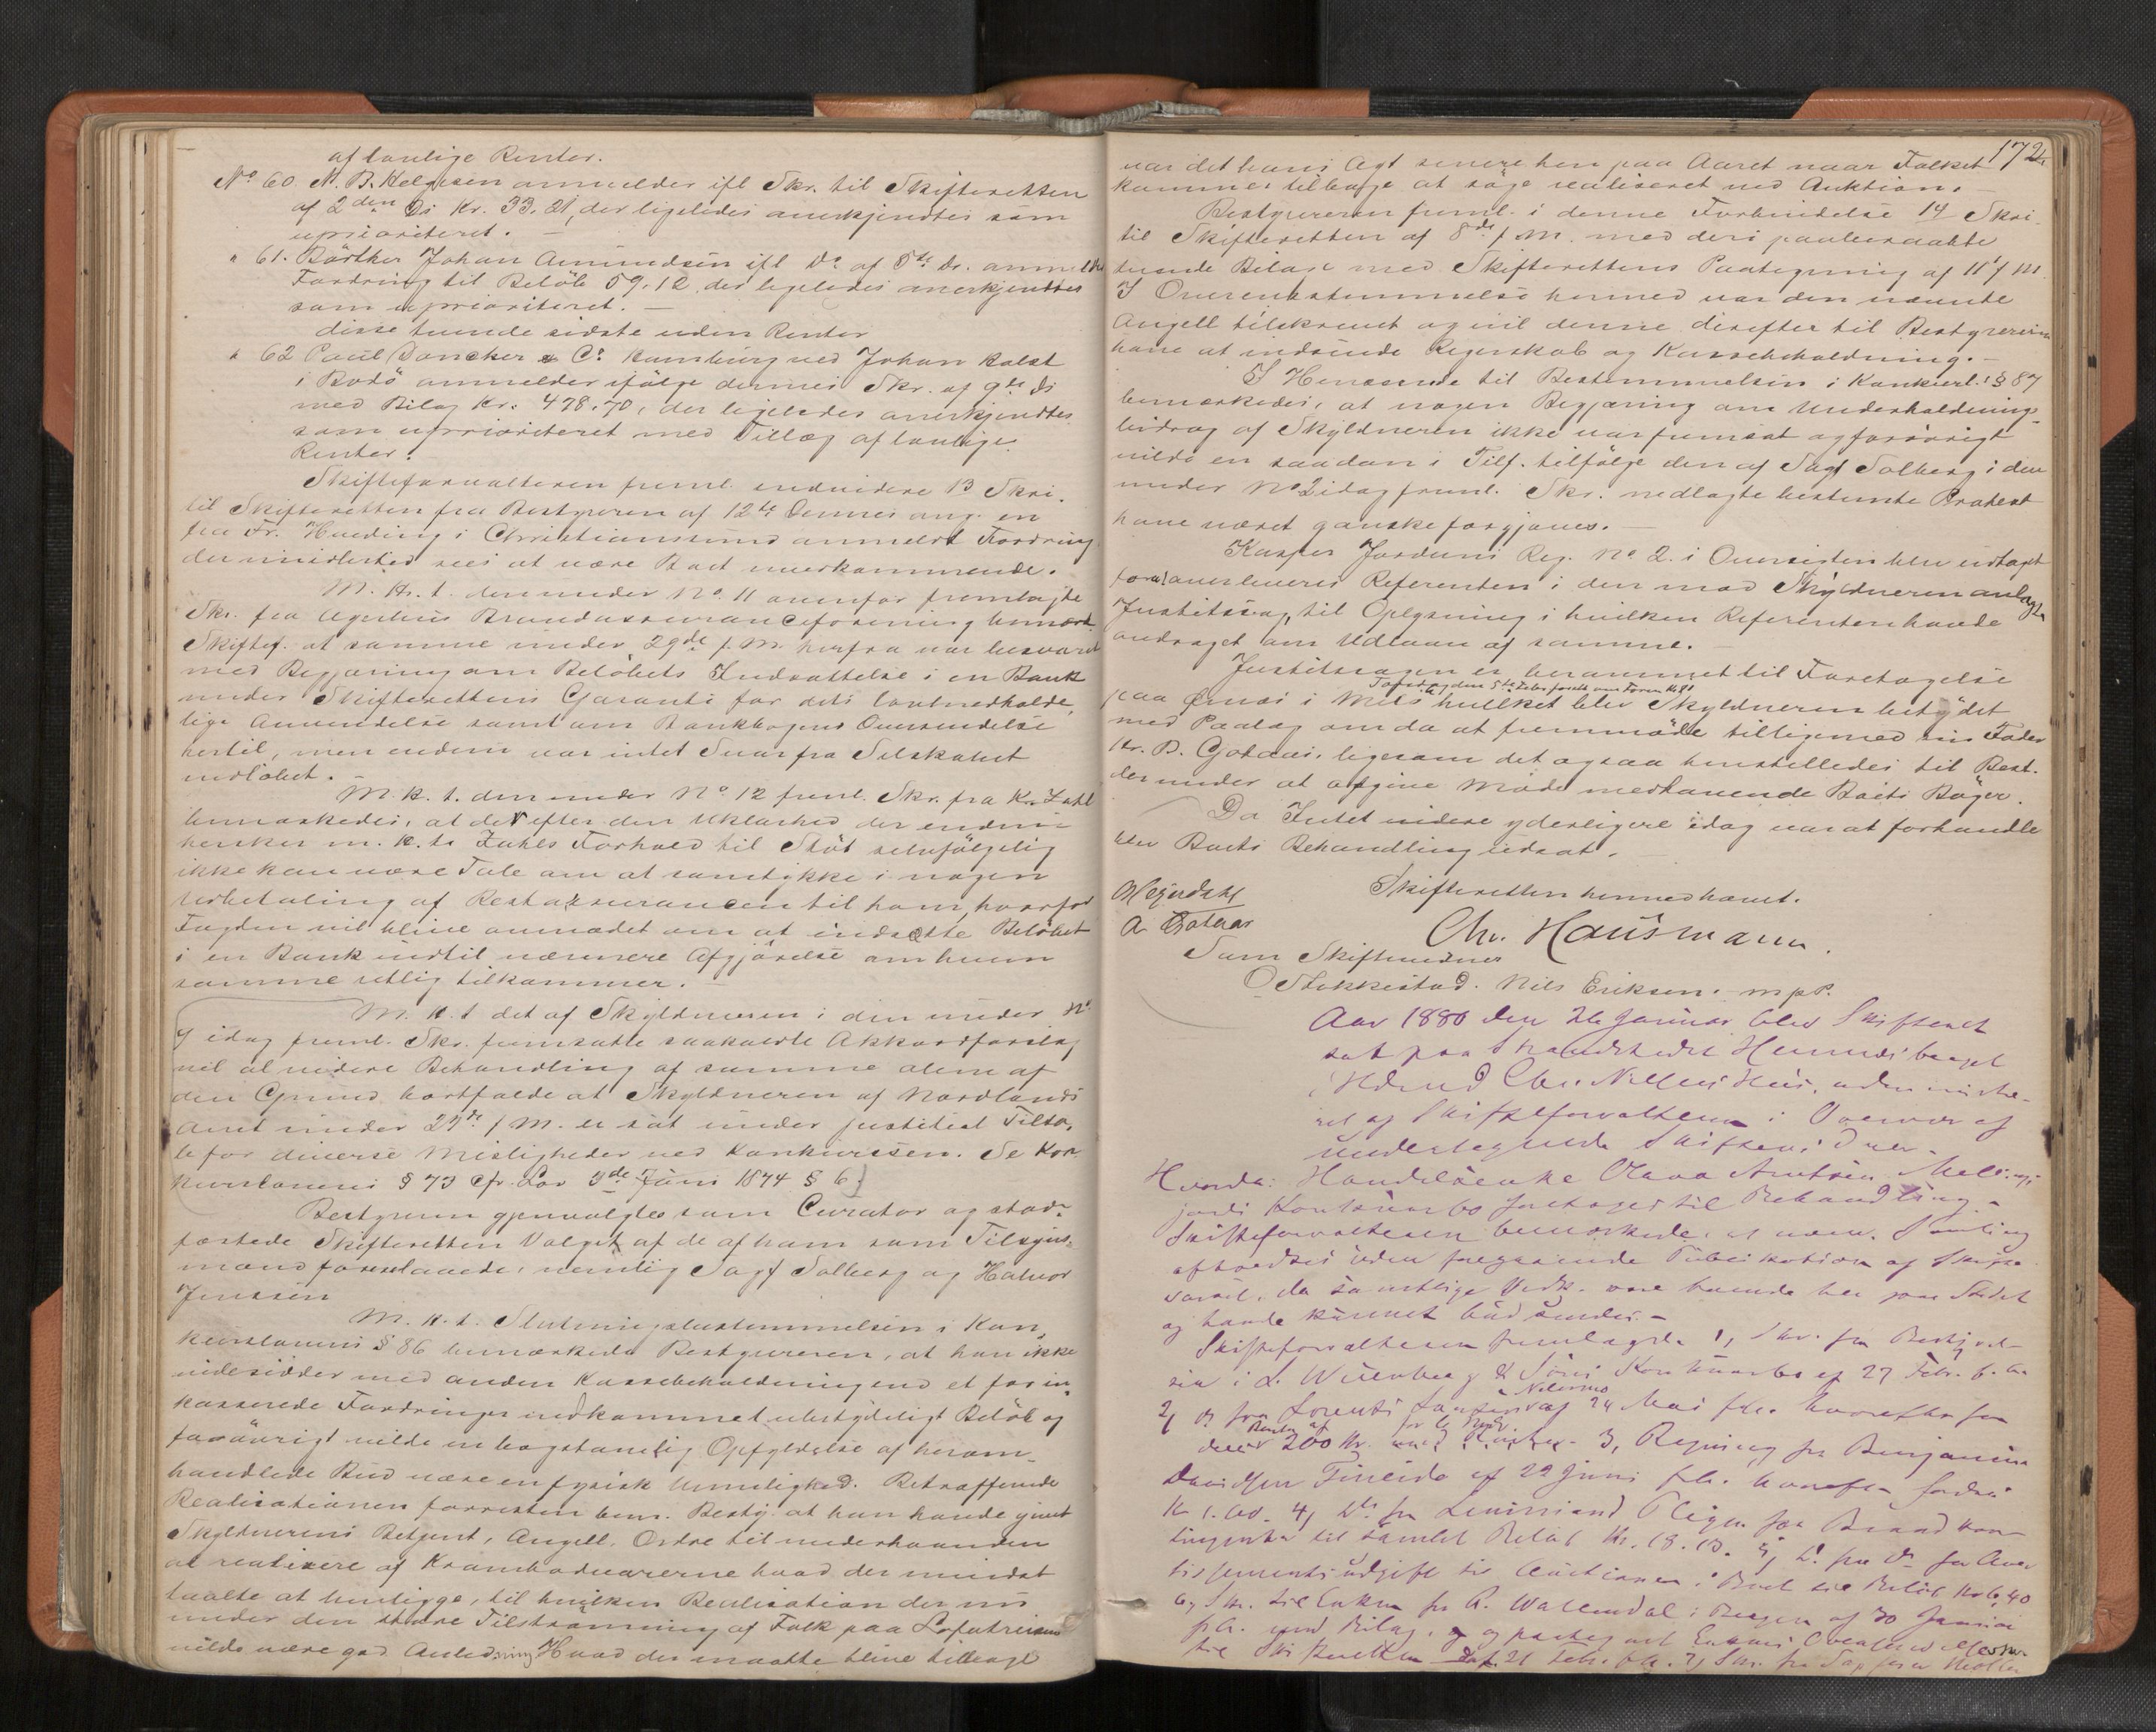 af lovlige Renter.
No 60. N. B. Helgesen anmelder ifl Skr. til Skifteretten
af 2den Ds Kr. 33.21, der ligeledes anerkjendtes som
uprioriteret. —
" 61. Bödtker Johan Amundsen ifl Do af 5te Ds. anmeldte
Fordring til Belöb 59.12 der ligeledes anerkjendtes
som uprioriteret. —
disse tvende sidste uden Renter
" 62 Paul Doncker & Co Hamburg ved Johan Kalst
i Bodö anmelder ifölge dennes Skr. af 9de Ds
med Bilag Kr. 478.70, der ligeledes anerkjendtes
som uprioriteret med Tillæg af lovlige
Renter.
Skifteforvalteren freml. endvidere 13 Skri.
til Skifteretten fra Bestyreren af 12te Dennes ang. en
fra Fr. i Christianssund anmeldt Fordring
der imidlertid sees at være Boet uvedkommende.
M. H. t. den under No. 11 ovenfor fremlagte
Skr. fra Agerhus Brandassuranceforening bemærk.
Skiftef. at samme under 29de f. M. herfra var besvaret
med Begjæring om Belöbets Indsættelse i en Bank
under Skifterettens Garanti for dets lovmedholde.
lige Anvendelse samt om Bankbogens Oversendelse
hertil, men endnu var intet Svar fra Selskabet
indlöbet. —
M. H. t. den under No 12 freml. Skr. fra Kr. Zahl
bemærkedes, at det efter den Uklarhed der endnu
hersker m. H. t. Zahls Forhold til Boet selvfölgelig
ikke kan være Tale om at samtykke i nogen
Udbetaling af Restassurancen til ham, hvorfor
Fogden vil blive anmodet om at indsætte Belöbet
i en Bank indtil nærmere Afgjörelse om hvem
samme retlig tilkommer. —
M. H. t det af Skyldneren i den under No
9 idag freml. Skr. fremsatte saakaldte Akkordforslag
vil al videre Behandling af samme alene af
den Grund bortfalde at Skyldneren af Nordlands
Amt under 29de f. M. er sat under justitiel Tilta,
le for diverse Misligheder ved Konkursen. Se Kon
kurslovens § 73 Cfr. Lov 3de Juni 1874 § 6.
Bestyreren gjenvalgtes som Curator og stad-
fæstede Skifteretten Valget af de af ham som Tilsyns-
mænd foreslaaede, nemlig Sagf Solberg og Halvor
Jenssen
M. H. t. Slutningsbestemmelsen i Kon,
kurslovens § 86 bemærkede Bestyreren, at han ikke
indesidder med anden Kassebeholdning end et for in,
kasserede Fordringer indkommet ubetydeligt Belöb og
forövrigt vilde en bogstavelig Opfyldelse af herom-
handlede Bud være en fysisk Umulighed. Betræffende
Realisationen forresten bem. Besty. at han havde givet
Skyldnerens Betjent, Angell. Ordre til underhaanden
at realisere af Kramboduarerne hvad der mindst
taalte at henligge, til hvilken Realisation der nu
under den större Tilströmning af Folk paa Lofotreisen
vilde være god Anledning Hvad der maatte blive tilbage
172.
var det hans Agt senere hen paa Aaret naar Folket
kommer tilbage at söge realiseret ved Auktion.
Bestyreren freml. i denne Forbindelse 14 Skri-
til Skifteretten af 8de f. M. med deri paaberaabte
tvende Bilage med Skifterettens Paategning af 11' f M.
I Overensstemmelse hermed var den nævnte
Angell tilskrevet og vil denne derefter til Bestyreren
have at indsende Regnskab og Kassebeholdning. —
I Henseende til Bestemmelsen i Konkursl.s § 87
bemærkedes, at nogen Begjæring om Underholdnings-
bidrag af Skyldneren ikke var fremsat og forövrigt
vilde en saadan i Tilf. tilfölge den af Sagf Solberg i den
under No 2 idag freml. Skr. nedlagte bestemte Protest
have været ganske forgjæves. —
Kasper Jordens Reg. No 2. i Oversigten blev udtaget
for at overleveres Referenten i den mod Skyldneren anlagte
Justitssag, til Oplysning i hvilken Referenten havde
andraget om Udlaan af samme. —
Justitssagen er berammet til Foretagelse
Torsdag den 5te Febr. förstk. om Form. Kl 8
paa Örnes i Melö hvilket blev Skyldneren betydet
med Paalæg om da at fremmöde tilligemed sin Fader
Hr. B. Gotaas. ligesom det ogsaa henstilledes til Best.
derunder at afgive Möde medhavende Boets Böger.
Da Intet videre yderligere idag var at forhandle
blev Boets Behandling udsat. —
Skifteretten hermed hævet.
Mejndahl
A Gotaas
Chr. Hausmann.
Som Skiftevidner
O Stokkestad. Nils Eriksen. m p P.
Aar 1880 den 26 Januar, blev Skifteret
sat paa Strandstedet Hemnesberget
i Hdsmd Chr. Nilsens Hus, administre-
ret af Skifteforvalteren i Overvær af
undertegnede Skiftevidner.
Hvorda: Handelsenke Olava Arntsen
jords Konkursbo foretoges til Behandling. —
Skifteforvalteren bemærkede, at nærv. Samling
afholdtes uden foregaaende Publikation af Skifte
varsel, da samtlige Vedk. vare boende her paa Stedet
og havde kunnet budsendes. —
Skifteforvalteren fremlagde 1, Skr. fra Bestyrel-
sen i L. Wienberg & Söns Konkursbo af 27 Febr. f. A.
2, do fra Lorents Nilsens af 24 Mai f. A. hvorefter
200 Kr. 3, Regning fra Benjamin
Davidsen Finneide af 22 Juni f. A. hvorefter fordres
Kr 1.60. 4, Do fra Lensmand for Brandkon-
tingenter til samlet Belöb Kr. 18.13. 5, Do fra Do for Aver
tissementsudgift til Auktionen i Boet til Belöb Kr 6,40
6, Skr. til Enken fra A. Wallendal i Bergen af 30 Januar
f. A. med Bilag, og paategnet Enkens
til Skifteretten Dat. 21 Febr. f. A. 7, Skr. fra